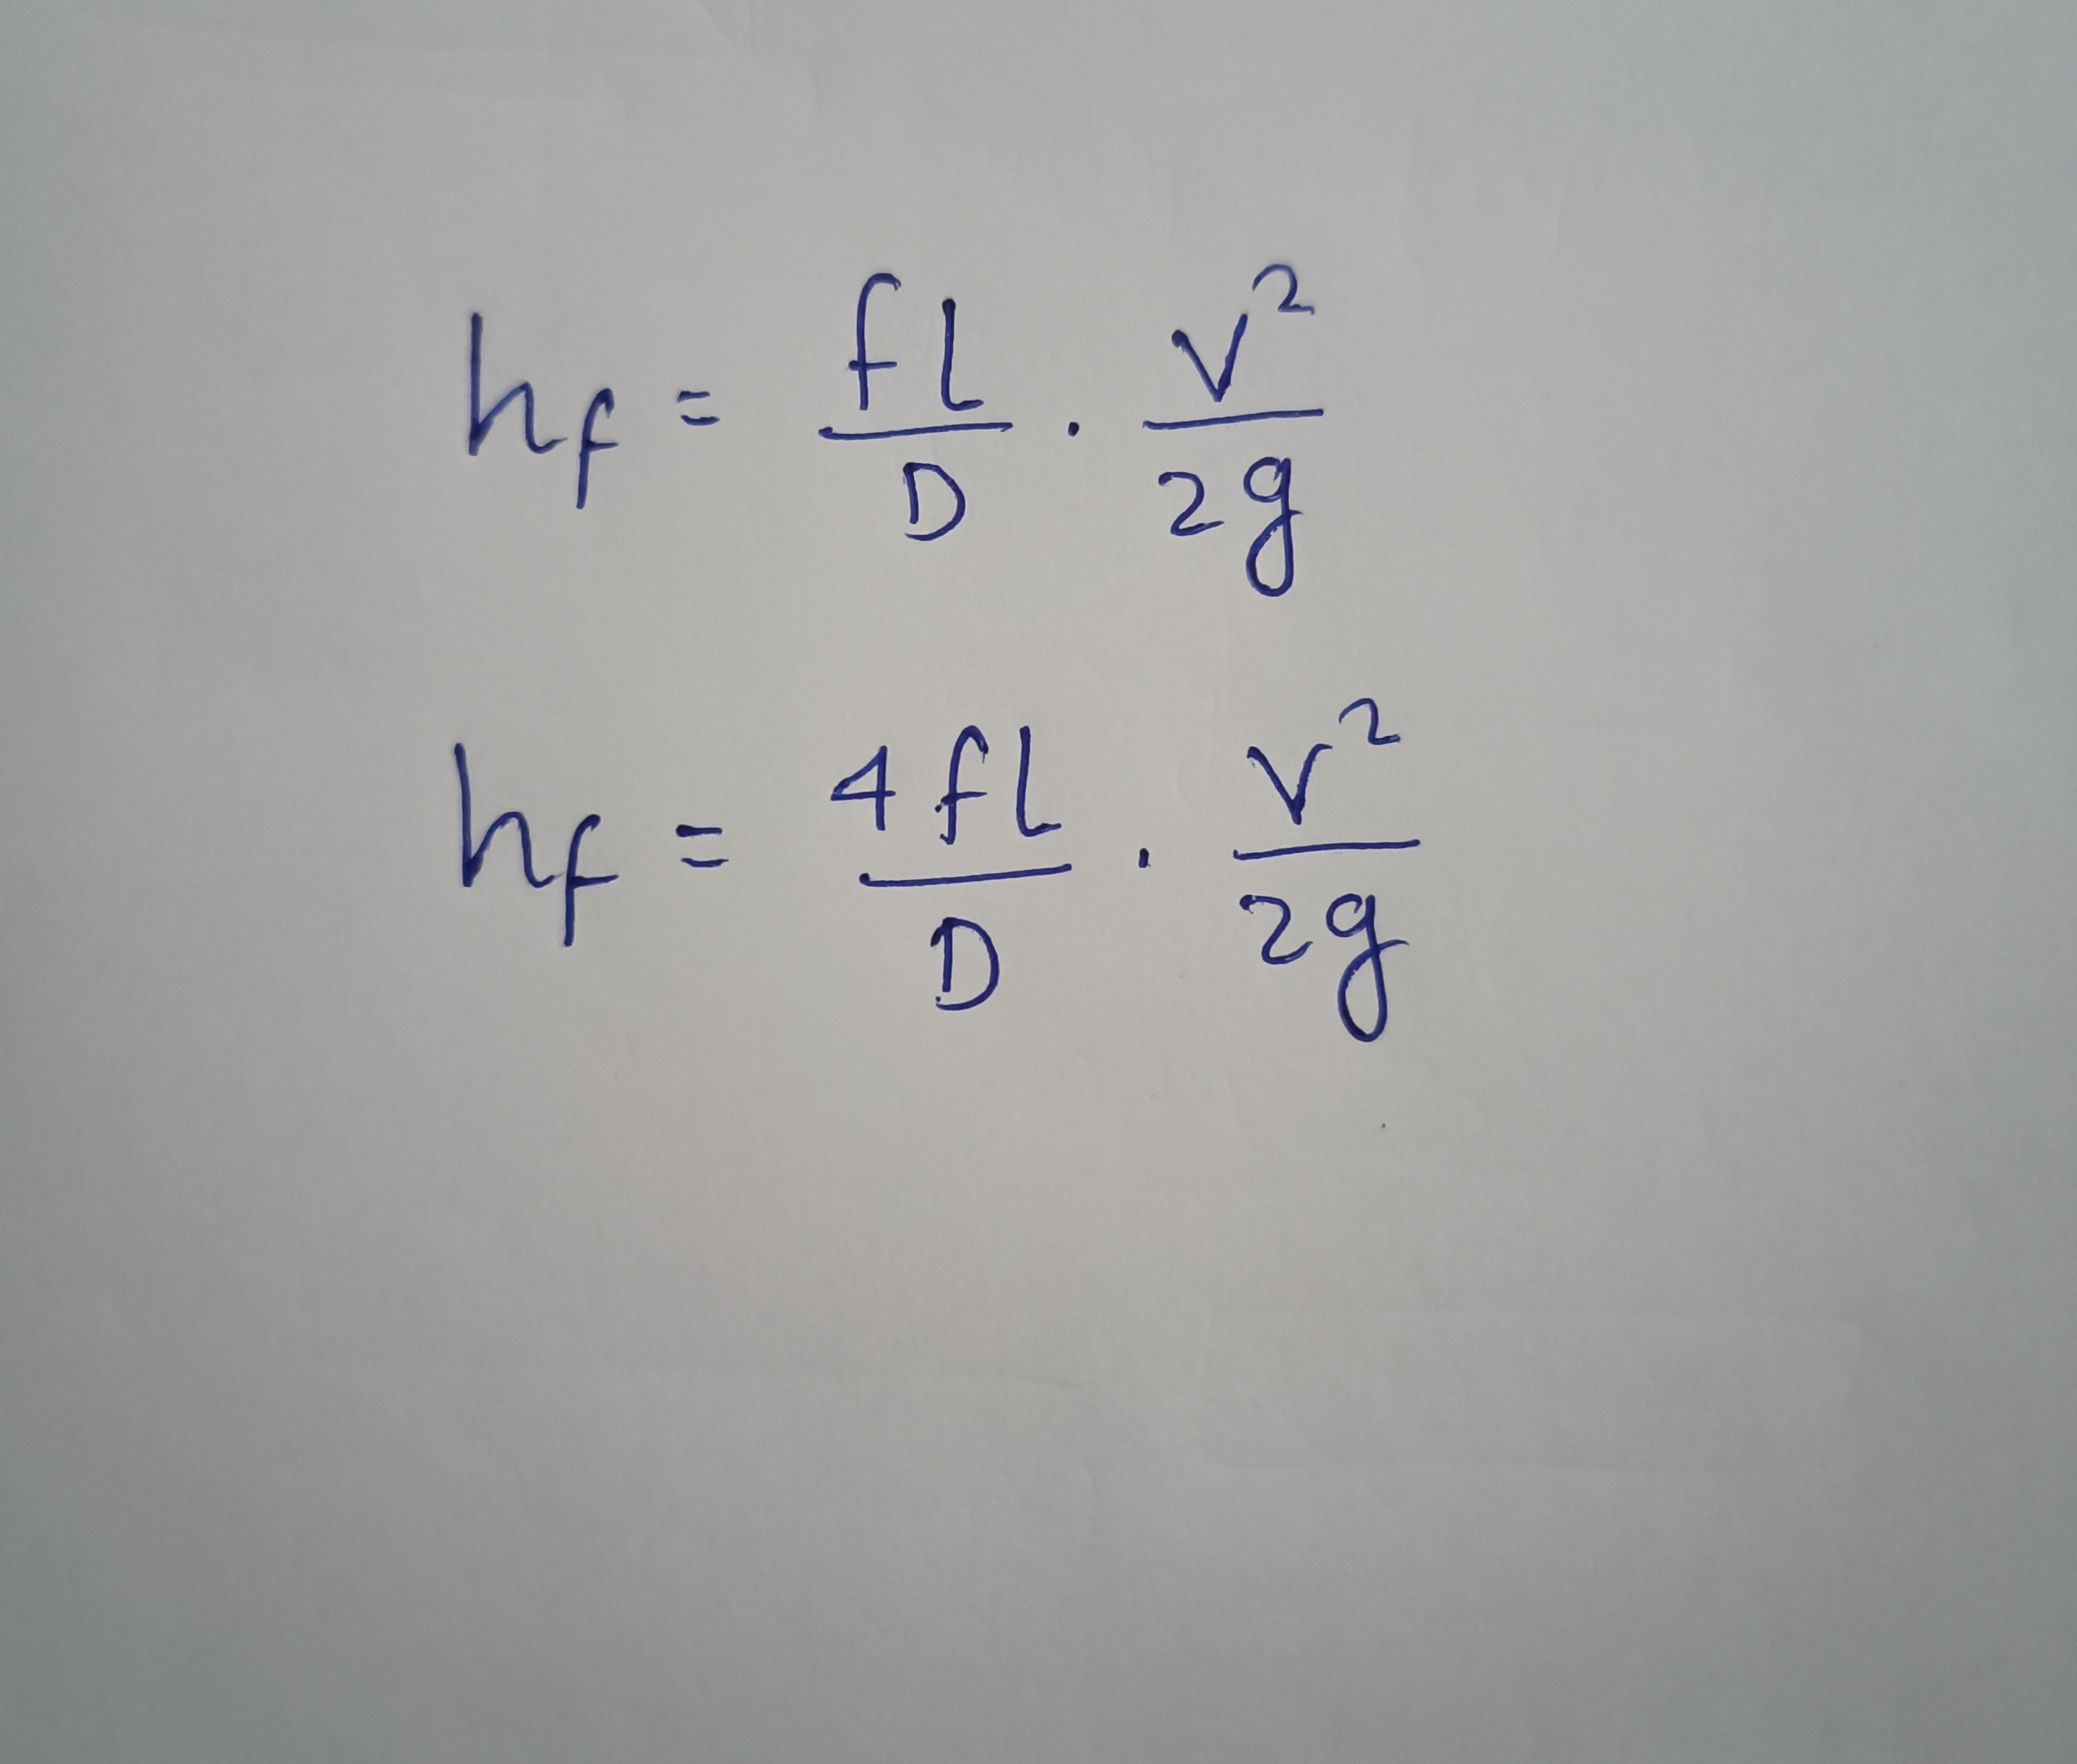 h_f = fL/D · V²/2g
h_f = 4fL/D · V²/2g